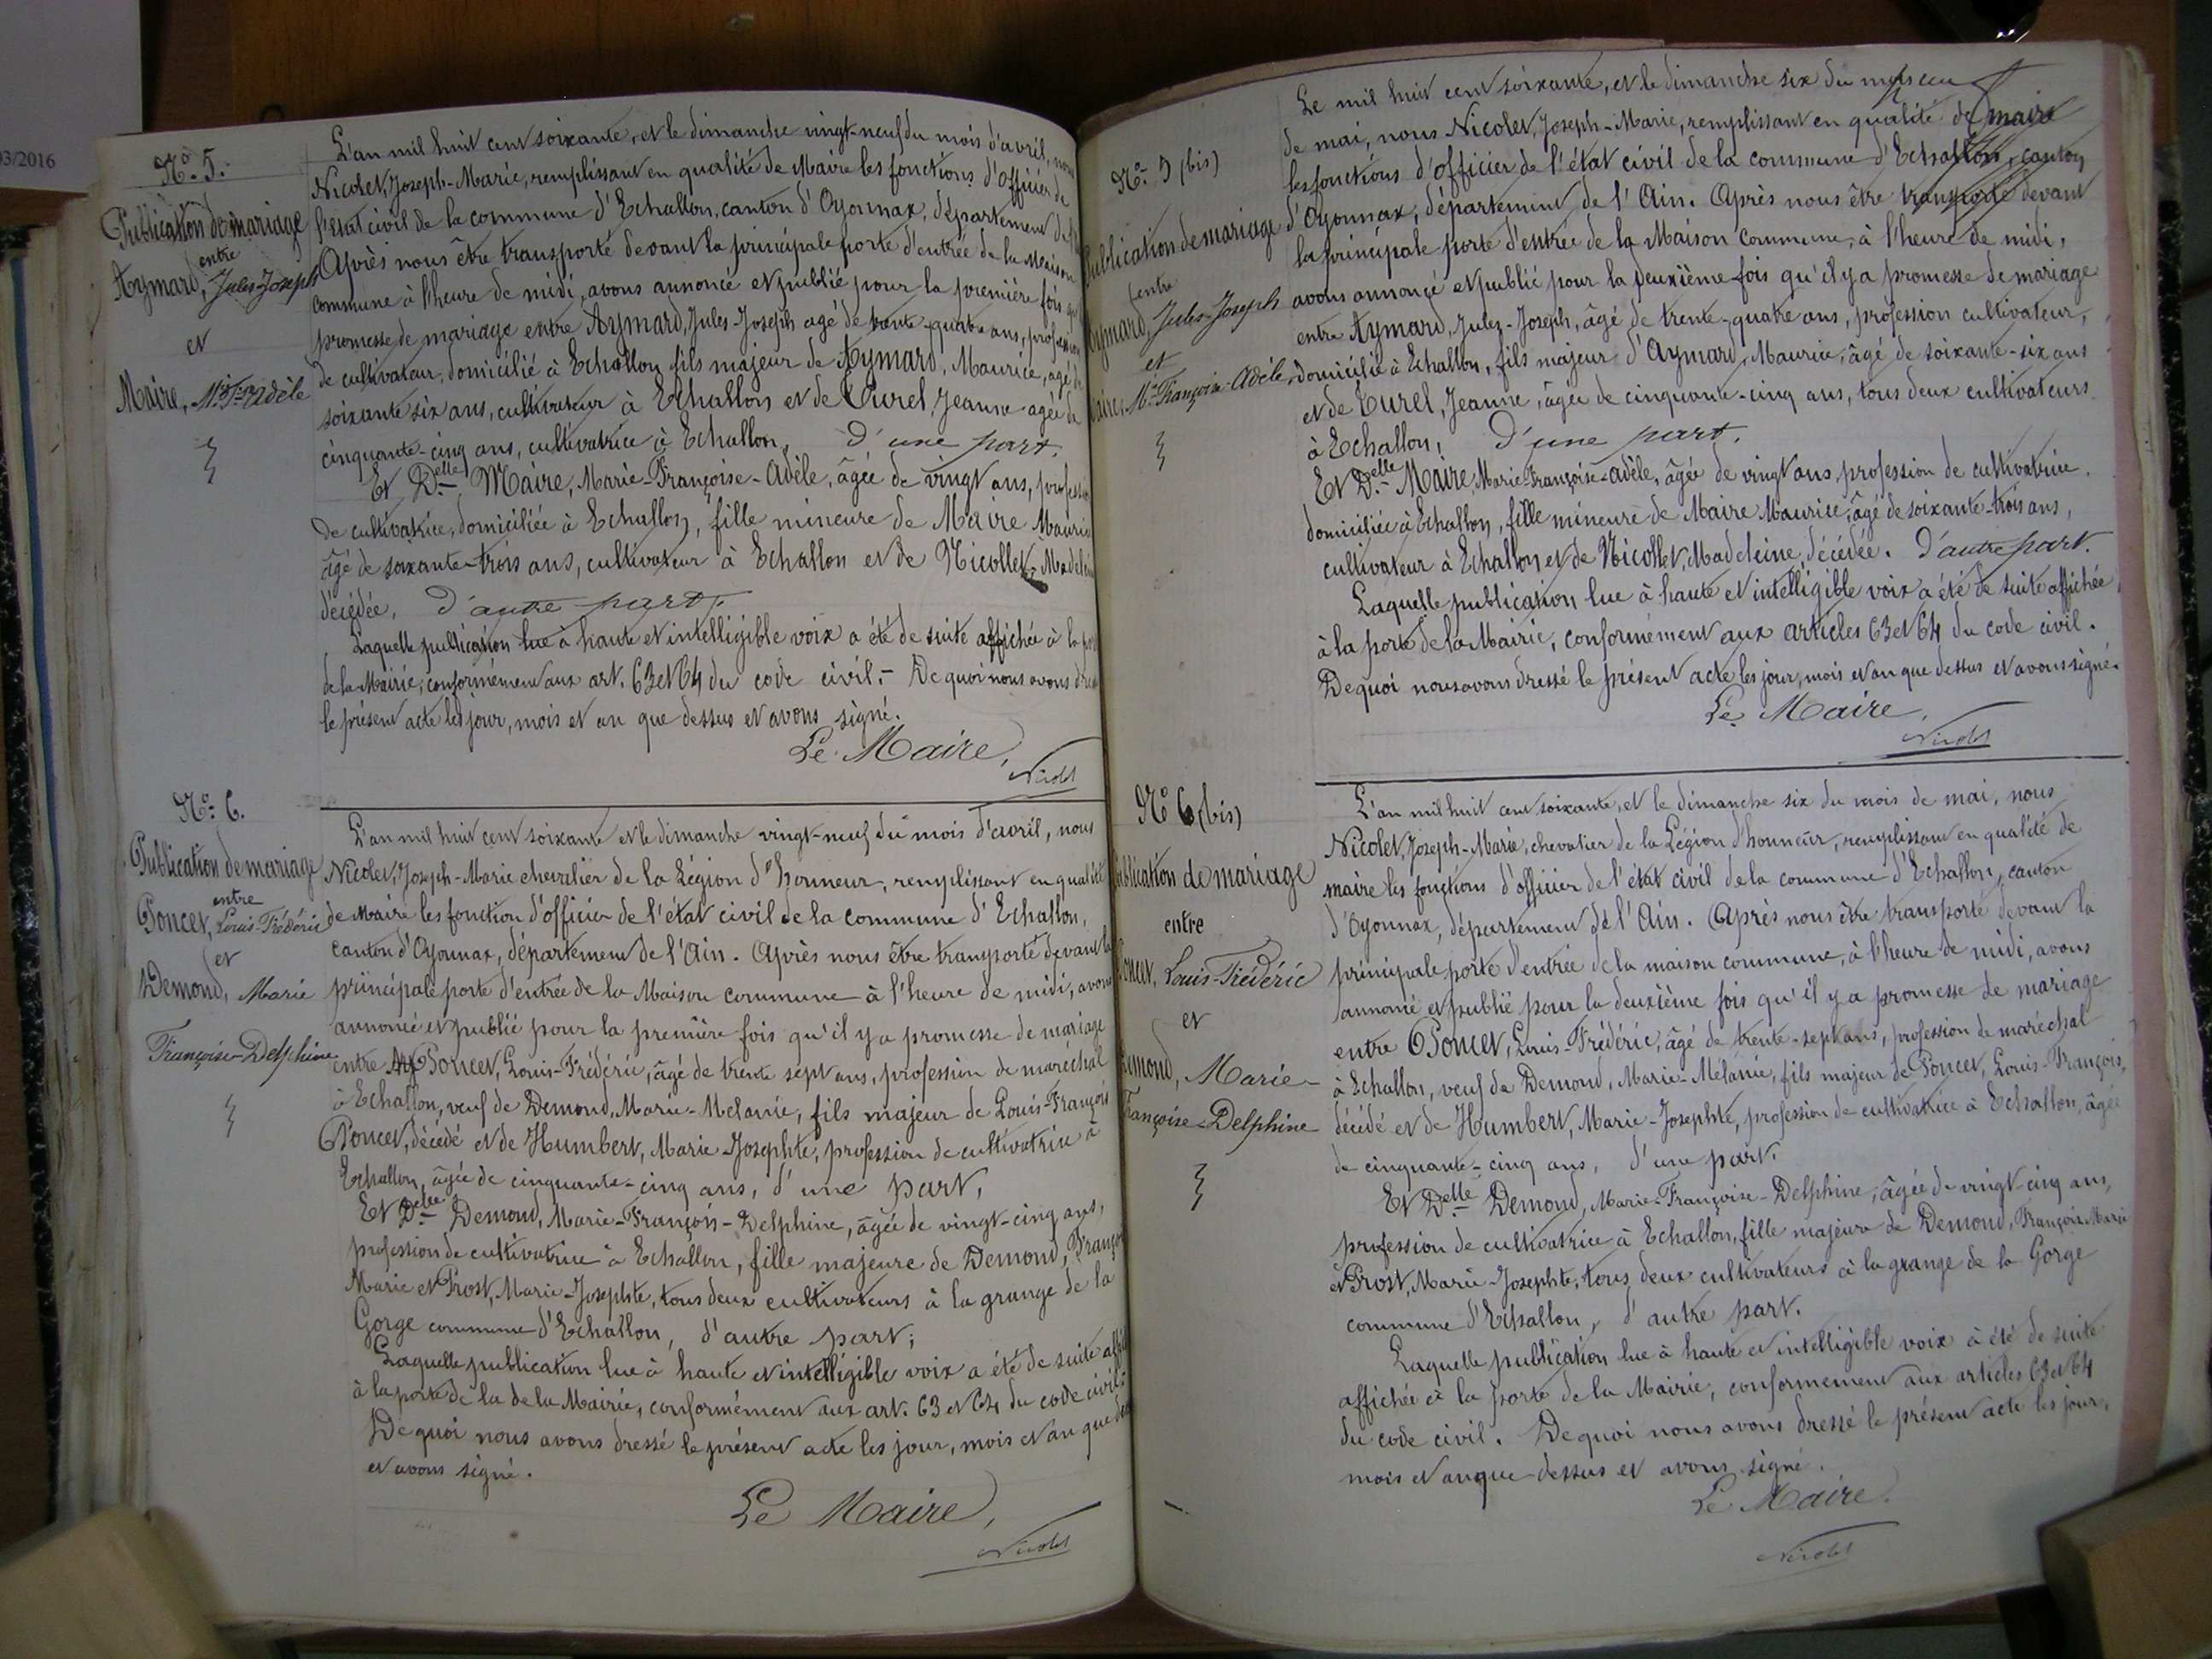 03/2016
N.º 5.
Publication de mariage
entre
Aymard, Jules-Joseph
et
Maire, M.ie F.se Adèle
L'an mil huit cent soixante, et le dimanche vingt-neuf du mois d'avril, nous
Nicolet, Joseph-Marie, remplissant en qualité de Maire les fonctions d'officier de
l'état civil de la commune d'Echallon, canton d'Oyonnax, département de
Après nous être transporté devant la principale porte d'entrée de la Maison
commune à l'heure de midi, avons annoncé et publié pour la première fois
promesse de mariage entre Aymard, Jules-Joseph agé de trente-quatre ans, profession
de cultivateur, domicilié à Echallon fils majeur de Aymard, Maurice, agé de
soixante six ans, cultivateur à Echallon et de Turel, Jeanne agée de
cinquante-cinq ans, cultivatrice à Echallon, d'une part.
Et D.elle Maire, Marie-Françoise-Adèle, âgée de vingt ans, profession
de cultivatrice, domiciliée à Echallon, fille mineure de Maire Maurice
âgé de soixante-trois ans, cultivateur à Echallon et de Nicollet, Madeleine
décédée, d'autre part.
Laquelle publication lue à haute et intelligible voix a été de suite affichée à la porte
de la Mairie, conformément aux art. 63 et 64 du code civil.- De quoi nous avons dressé
le présent acte les jour, mois et an que dessus et avons signé.
Le Maire,
Nicolet
N.º 6.
Publication de mariage
entre
Poncet, Louis-Frédéric
et
Demond, Marie
Françoise-Delphine
L'an mil huit cent soixante et le dimanche vingt-neuf du mois d'avril, nous
Nicolet, Joseph-Marie chevalier de la Légion d'honneur, remplissant en qualité
de Maire les fonction d'officier de l'état civil de la commune d'Echallon,
canton d'Oyonnax, département de l'Ain. Après nous être transporté devant la
principale porte d'entrée de la Maison commune à l'heure de midi, avons
annoncé et publié pour la première fois qu'il y a promesse de mariage
entre Poncet, Louis-Frédéric, âgé de trente sept ans, profession de maréchal
à Echallon, veuf de Demond, Marie-Melanie, fils majeur de Louis-François
Poncet, décédé et de Humbert, Marie-Josephte, profession de cultivatrice à
Echallon, âgée de cinquante-cinq ans, d'une part,
Et D.elle Demond, Marie-François-Delphine, âgée de vingt-cinq ans,
profession de cultivatrice à Echallon, fille majeure de Demond, François
Marie et Prost, Marie-Josephte, tous deux cultivateurs à la grange de la
Gorge commune d'Echallon, d'autre part;
Laquelle publication lue à haute et intelligible voix a été de suite affichée
à la porte de la de la Mairie, conformément aux art. 63 et 64 du code civil.
De quoi nous avons dressé le présent acte les jour, mois et an que dessus
et avons signé.
Le Maire,
Nicolet
N.º 5 (bis)
Publication de mariage
entre
Aymard, Jules-Joseph
et
Maire, M.ie Françoise-Adèle,
Le mil huit cent soixante, et le dimanche six du mois
de mai, nous Nicolet, Joseph-Marie, remplissant en qualité de maire
les fonctions d'officier de l'état civil de la commune d'Echallon, canton
d'Oyonnax, département de l'Ain. Après nous être transporté devant
la principale porte d'entrée de la Maison commune, à l'heure de midi,
avons annoncé et publié pour la deuxième fois qu'il y a promesse de mariage
entre Aymard, Jules-Joseph, âgé de trente-quatre ans, profession cultivateur,
domicilié à Echallon, fils majeur d'Aymard, Maurice, âgé de soixante-six ans
et de Turel, Jeanne, âgée de cinquante-cinq ans, tous deux cultivateurs
à Echallon, d'une part.
Et D.elle Maire, Marie-Françoise-Adèle, âgée de vingt ans, profession de cultivatrice,
domiciliée à Echallon, fille mineure de Maire Maurice, âgé de soixante-trois ans,
cultivateur à Echallon et de Nicollet, Madeleine, décédée. d'autre part.
Laquelle publication lue à haute et intelligible voix a été de suite affichée
à la porte de la Mairie, conformément aux articles 63 et 64 du code civil.
De quoi nous avons dressé le présent acte les jour, mois et an que dessus et avons signé.
Le Maire,
Nicolet
N.º 6 (bis)
Publication de mariage
entre
Poncet, Louis-Frédéric
et
Demond, Marie-
Françoise-Delphine
L'an mil huit cent soixante, et le dimanche six du mois de mai, nous
Nicolet, Joseph-Marie, chevalier de la Légion d'honneur, remplissant en qualité de
maire les fonctions d'officier de l'état civil de la commune d'Echallon, canton
d'Oyonnax, département de l'Ain. Après nous être transporté devant la
principale porte d'entrée de la maison commune, à l'heure de midi, avons
annoncé et publié pour la deuxième fois qu'il y a promesse de mariage
entre Poncet, Louis-Frédéric, âgé de trente-sept ans, profession de maréchal
à Echallon, veuf de Demond, Marie-Mélanie, fils majeur de Poncet, Louis-François,
décédé et de Humbert, Marie-Josephte, profession de cultivatrice à Echallon, âgée
de cinquante-cinq ans, d'une part.
Et D.elle Demond, Marie-Françoise-Delphine, âgée de vingt-cinq ans,
profession de cultivatrice à Echallon, fille majeure de Demond, François Marie
et Prost, Marie-Josephte, tous deux cultivateurs à la grange de la Gorge
commune d'Echallon, d'autre part.
Laquelle publication lue à haute et intelligible voix à été de suite
affichée à la porte de la Mairie, conformement aux articles 63 et 64
du code civil. De quoi nous avons dressé le présent acte les jour,
mois et an que dessus et avons signé.
Le Maire.
Nicolet